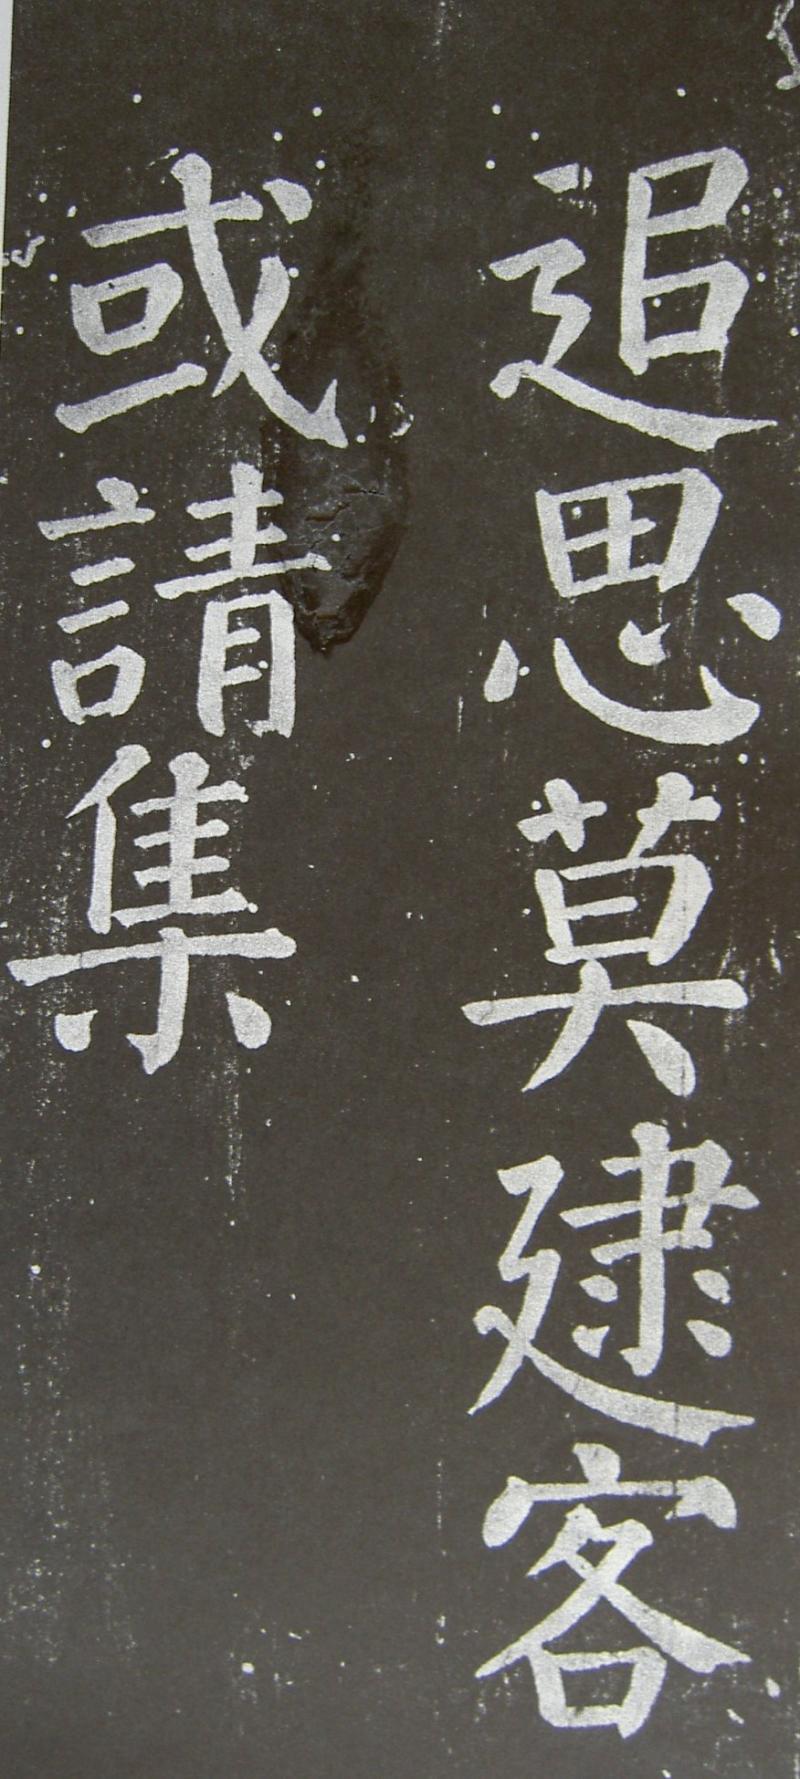 追思莫逮客
或請集